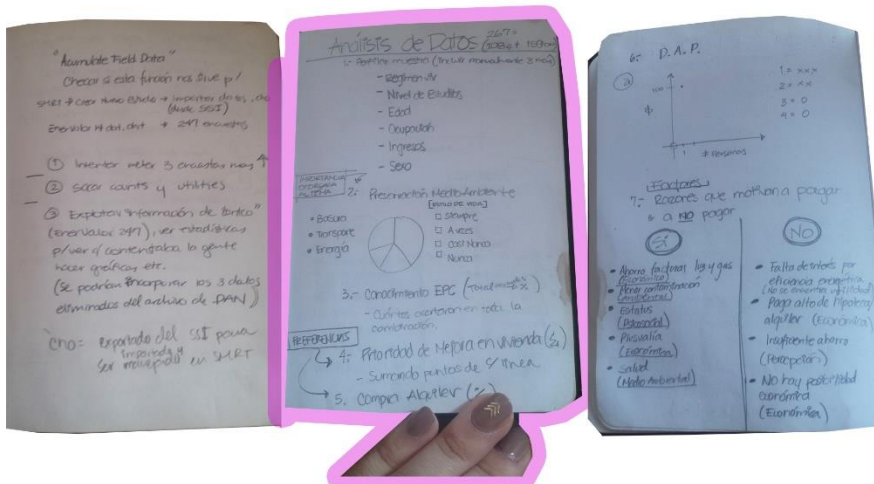 "Acumulate Field Data"
Checar si esta función nos sirve p/
SMRT → Crear Nuevo Estudio → Importar datos .cho
(desde SSI)
→ 247 encuestas
① Intentar meter 3 encuestas
② sacar counts y utilities
③ Explotar información de
(Enervalor 247), ver estadísticas
p/ver q' contestaba la gente
hacer gráficas etc.
(se podrían incorporar los 3 datos
eliminados del archivo de DAN)
cho = exportado del SSI para
ser en SMRT
Análisis de Datos
1.- muestra
- Régimen viv
- Nivel de Estudios
- Edad
- Ocupación
- Ingresos
- Sexo
IMPORTANCIA
OTORGADA
AL TEMA
2.- Medio Ambiente
[ESTILO DE VIDA]
• Basura
• Transporte
• Energía
□ Siempre
□ A veces
□ Casi Nunca
□ Nunca
3.- Conocimiento EPC
- Cuántos acertaron en toda la
combinación
PREFERENCIAS
4.- Prioridad de Mejora en vivienda
- Sumando puntos de c/ línea
5. Compra Alquiler
6.- D.A.P.
ⓐ
# Personas
1 = xxx
2 = xx
3 = 0
4 = 0
Factores
7.- Razones que motivan a pagar
ó a NO pagar
Sí
• Ahorro facturas luz y gas
(Económico)
• Menor contaminación
(Ambiental)
• Estatus
(Psicosocial)
• Plusvalía
(Económica)
• Salud
(Medio Ambiental)
NO
• Falta de interés por
eficiencia energética
• Pago alto de hipoteca/
alquiler (Económica)
• Insuficiente ahorro
(Percepción)
• No hay posibilidad
económica
(Económica)